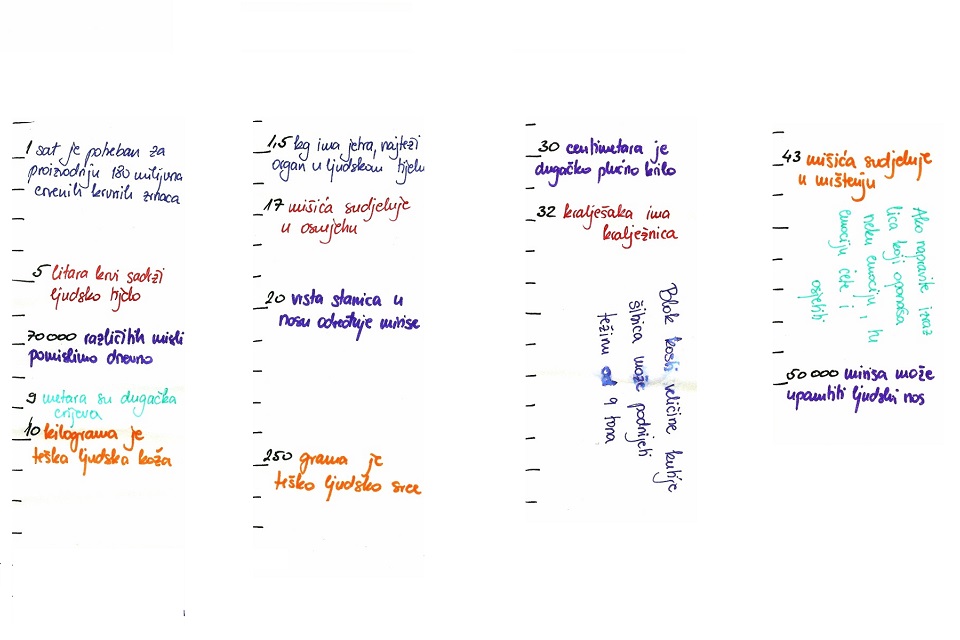 1 sat je potreban za
proizvodnju 180 milijuna
crvenih krvnih zrnaca
5 litara krvi sadrži
ljudsko tijelo
70000 različitih misli
pomislimo dnevno
9 metara su dugačka
crijeva
10 kilograma je
teška ljudska koža
1,5 kg ima jetra, najteži
organ u ljudskom tijelu
17 mišića sudjeluje
u osmjehu
20 vrsta stanica u
nosu određuje mirise
250 grama je
teško ljudsko srce
30 centimetara je
dugačko plućno krilo
32 kralješaka ima
kralježnica
Blok kosti veličine kutije
šibica može podnijeti
težinu od 9 tona
43 mišića sudjeluje
u mištenju
Ako napravite izraz
lica koji oponaša
neku emociju, tu
emociju ćete i
osjetiti
50 000 mirisa može
upamtiti ljudski nos